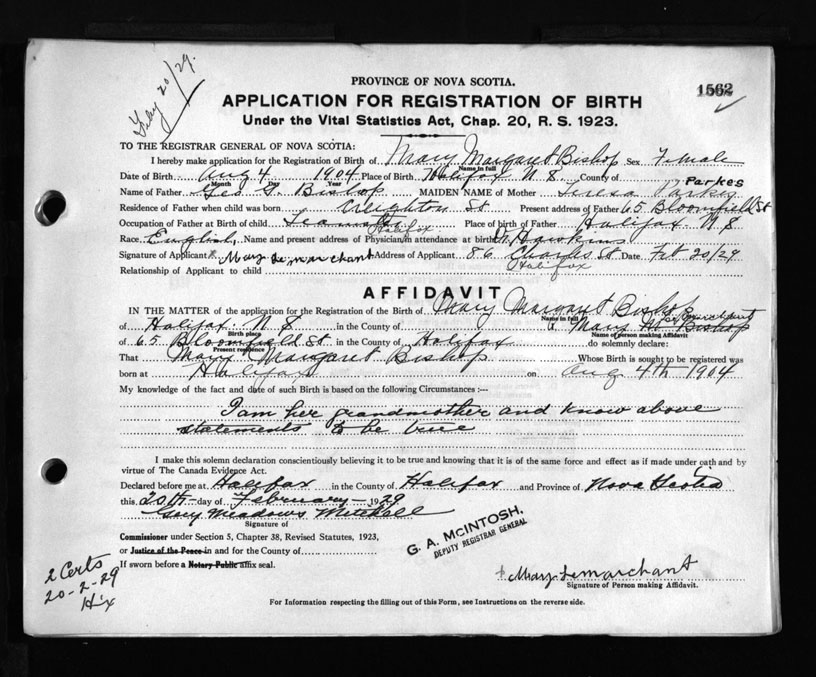 Feby 20/29.
PROVINCE OF NOVA SCOTIA.
1562
APPLICATION FOR REGISTRATION OF BIRTH
Under the Vital Statistics Act, Chap. 20, R. S. 1923.
TO THE REGISTRAR GENERAL OF NOVA SCOTIA:
I hereby make application for the Registration of Birth of Mary Margaret Bishop Sex Female
Name in full
Date of Birth Aug 4 1904 Place of Birth Halifax N S. County of
Month Day Year
Parkes
Name of Father Geo S. Bishop MAIDEN NAME of Mother Teresa
Residence of Father when child was born Creighton St Present address of Father 65 Bloomfield St
Occupation of Father at Birth of child Teamster Place of birth of Father Halifax N S
Halifax
Race English, Name and present address of Physician in attendance at birth Dr Hawkins
Signature of Applicant Mary Lemarchant Address of Applicant 86 Charles St Date Feb 20/29
Halifax
Relationship of Applicant to child
AFFIDAVIT
IN THE MATTER of the application for the Registration of the Birth of Mary Margaret Bishop
Name in full
of Halifax N S in the County of I Mary M. Bishop
Birth place
Name of person making Affidavit
of 65 Bloomfield St in the County of Halifax do solemnly declare:
Present residence
That Mary Margaret Bishop Whose Birth is sought to be registered was
born at Halifax on Aug 4th 1904
My knowledge of the fact and date of such Birth is based on the following Circumstances :—
I am her grandmother and know above
statements to be true
I make this solemn declaration conscientiously believing it to be true and knowing that it is of the same force and effect as if made under oath and by
virtue of The Canada Evidence Act.
Declared before me at Halifax in the County of Halifax and Province of Nova Scotia
this 20th day of February 1929
Meadows Mitchell
Signature of
Commissioner under Section 5, Chapter 38, Revised Statutes, 1923,
or Justice of the Peace in and for the County of
If sworn before a Notary Public affix seal.
G. A. McINTOSH,
DEPUTY REGISTRAR GENERAL
2 Certs
20-2-29
Hx
Mary Lemarchant
Signature of Person making Affidavit.
For Information respecting the filling out of this Form, see Instructions on the reverse side.